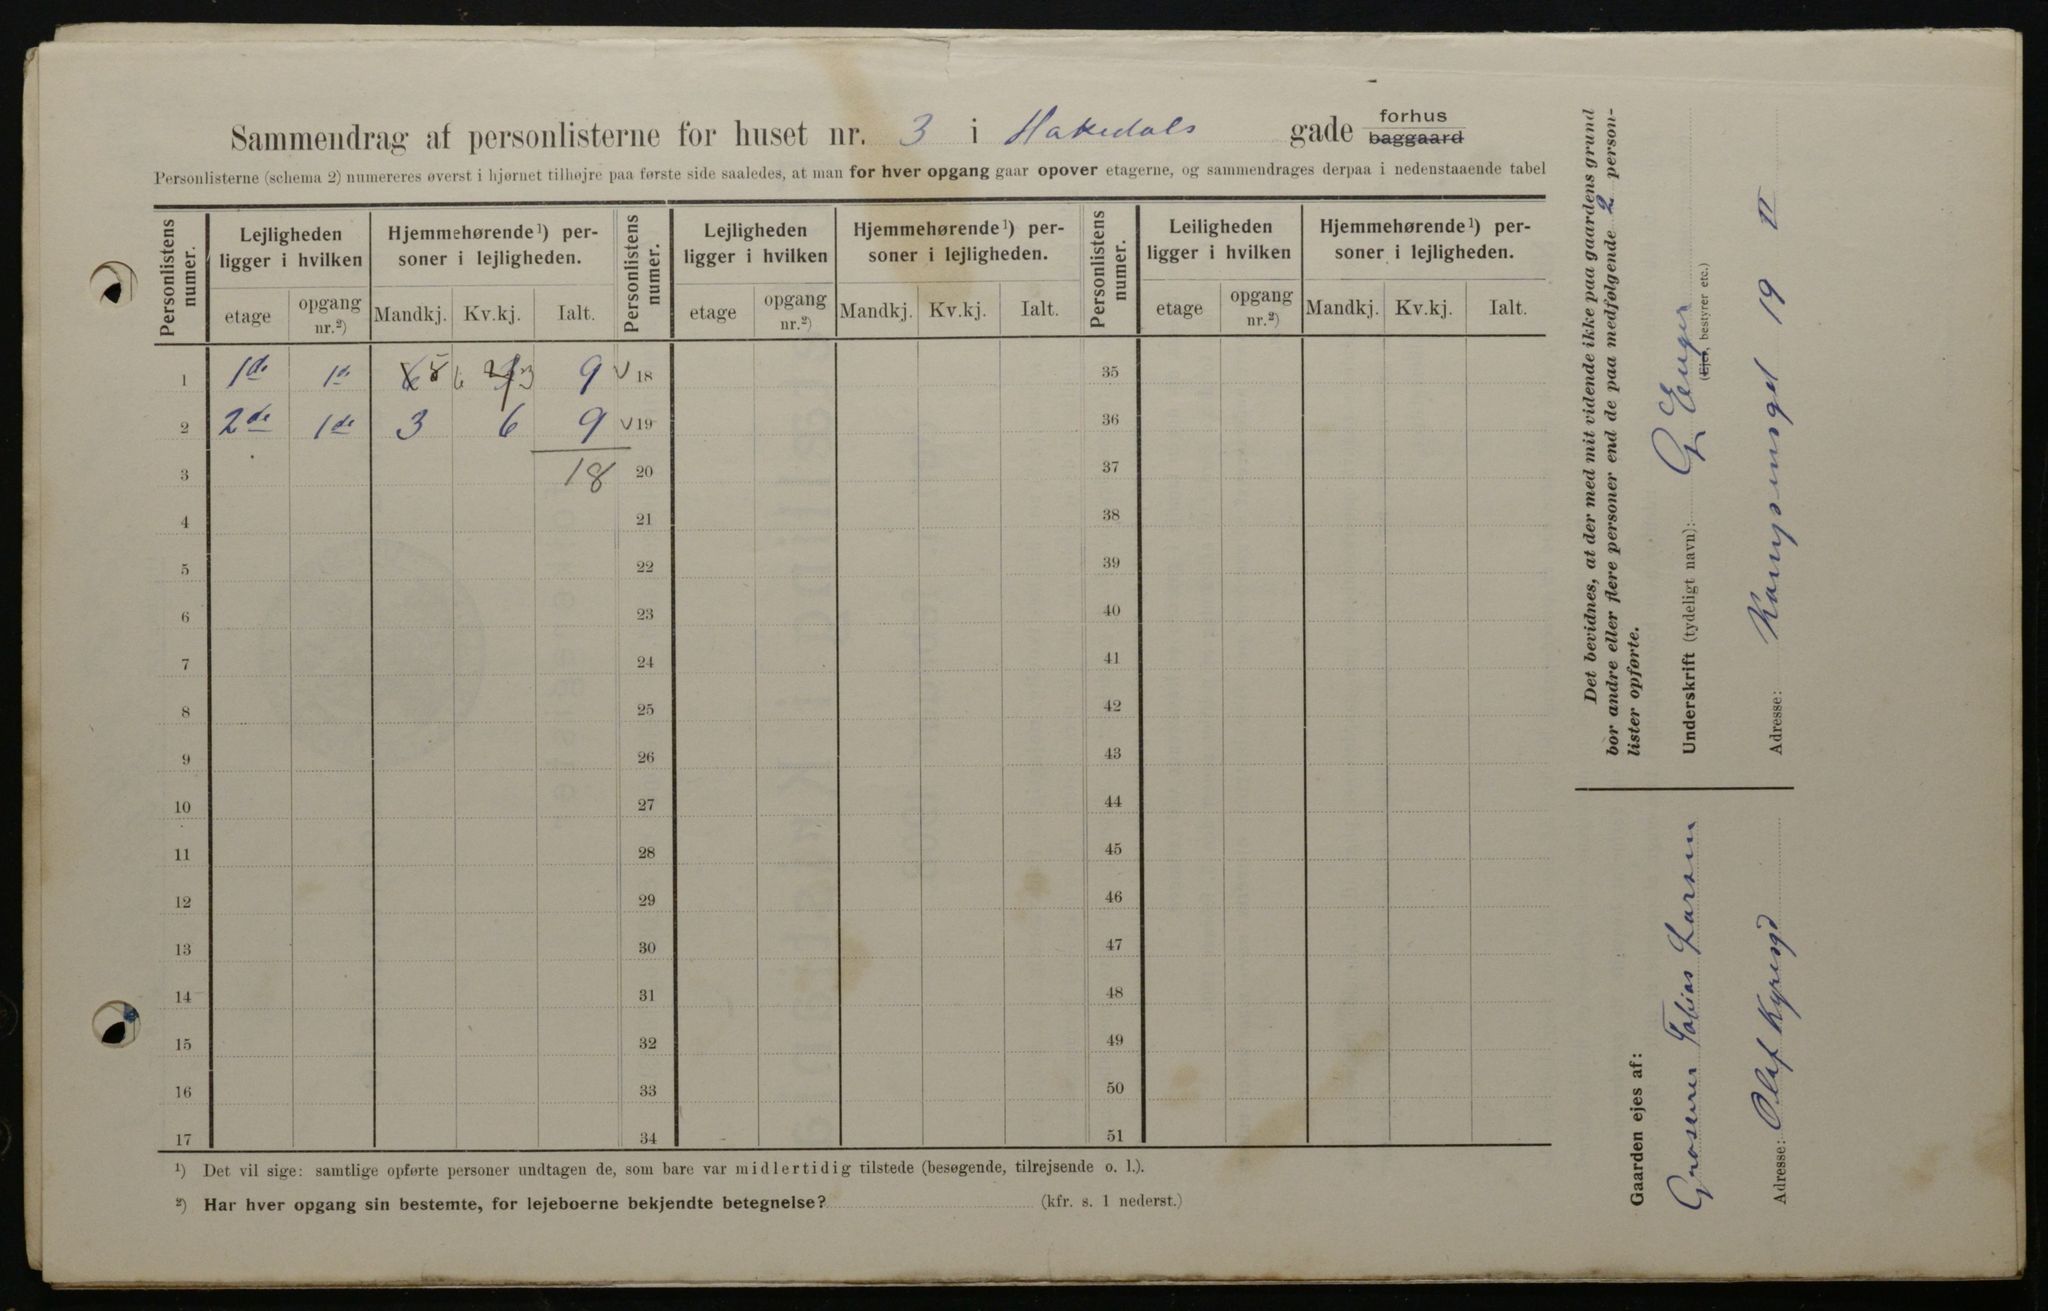 Sammendrag af personlisterne for huset nr. 3 i Hakedals gade forhus baggaard
Personlisterne (schema 2) numereres øverst i hjørnet tilhøjre paa første side saaledes, at man for hver opgang gaar opover etagerne, og sammendrages derpaa i nedenstaaende tabel
Personlistens numer. Lejligheden ligger i hvilken Hjemmehørende¹) personer i lejligheden. Personlistens numer. Lejligheden ligger i hvilken Hjemmehørende¹) personer i lejligheden. Personlistens numer. Leiligheden ligger i hvilken Hjemmehørende¹) personer i lejligheden.
etage opgang nr.²) Mandkj. Kv.kj. Ialt. etage opgang nr.²) Mandkj. Kv.kj. Ialt. etage opgang nr.²) Mandkj. Kv.kj. Ialt.
1 1de 1de 6 3 9 18 35
2 2de 1de 3 6 9 19 36
3 18 20 37
4 21 38
5 22 39
6 23 40
7 24 41
8 25 42
9 26 43
10 27 44
11 28 45
12 29 46
13 30 47
14 31 48
15 32 49
16 33 50
17 34 51
¹) Det vil sige: samtlige opførte personer undtagen de, som bare var midlertidig tilstede (besøgende, tilrejsende o. l.).
²) Har hver opgang sin bestemte, for lejeboerne bekjendte betegnelse? (kfr. s. 1 nederst.)
Det bevidnes, at der med mit vidende ikke paa gaardens grund
bor andre eller flere personer end de paa medfølgende 2 person-
lister opførte.
Underskrift (tydeligt navn): G Enger
(Ejer, bestyrer etc.)
Adresse: Kampensgd 19 II
Gaarden ejes af:
Groserer Tobias Larsen
Adresse: Olaf Kyresgd